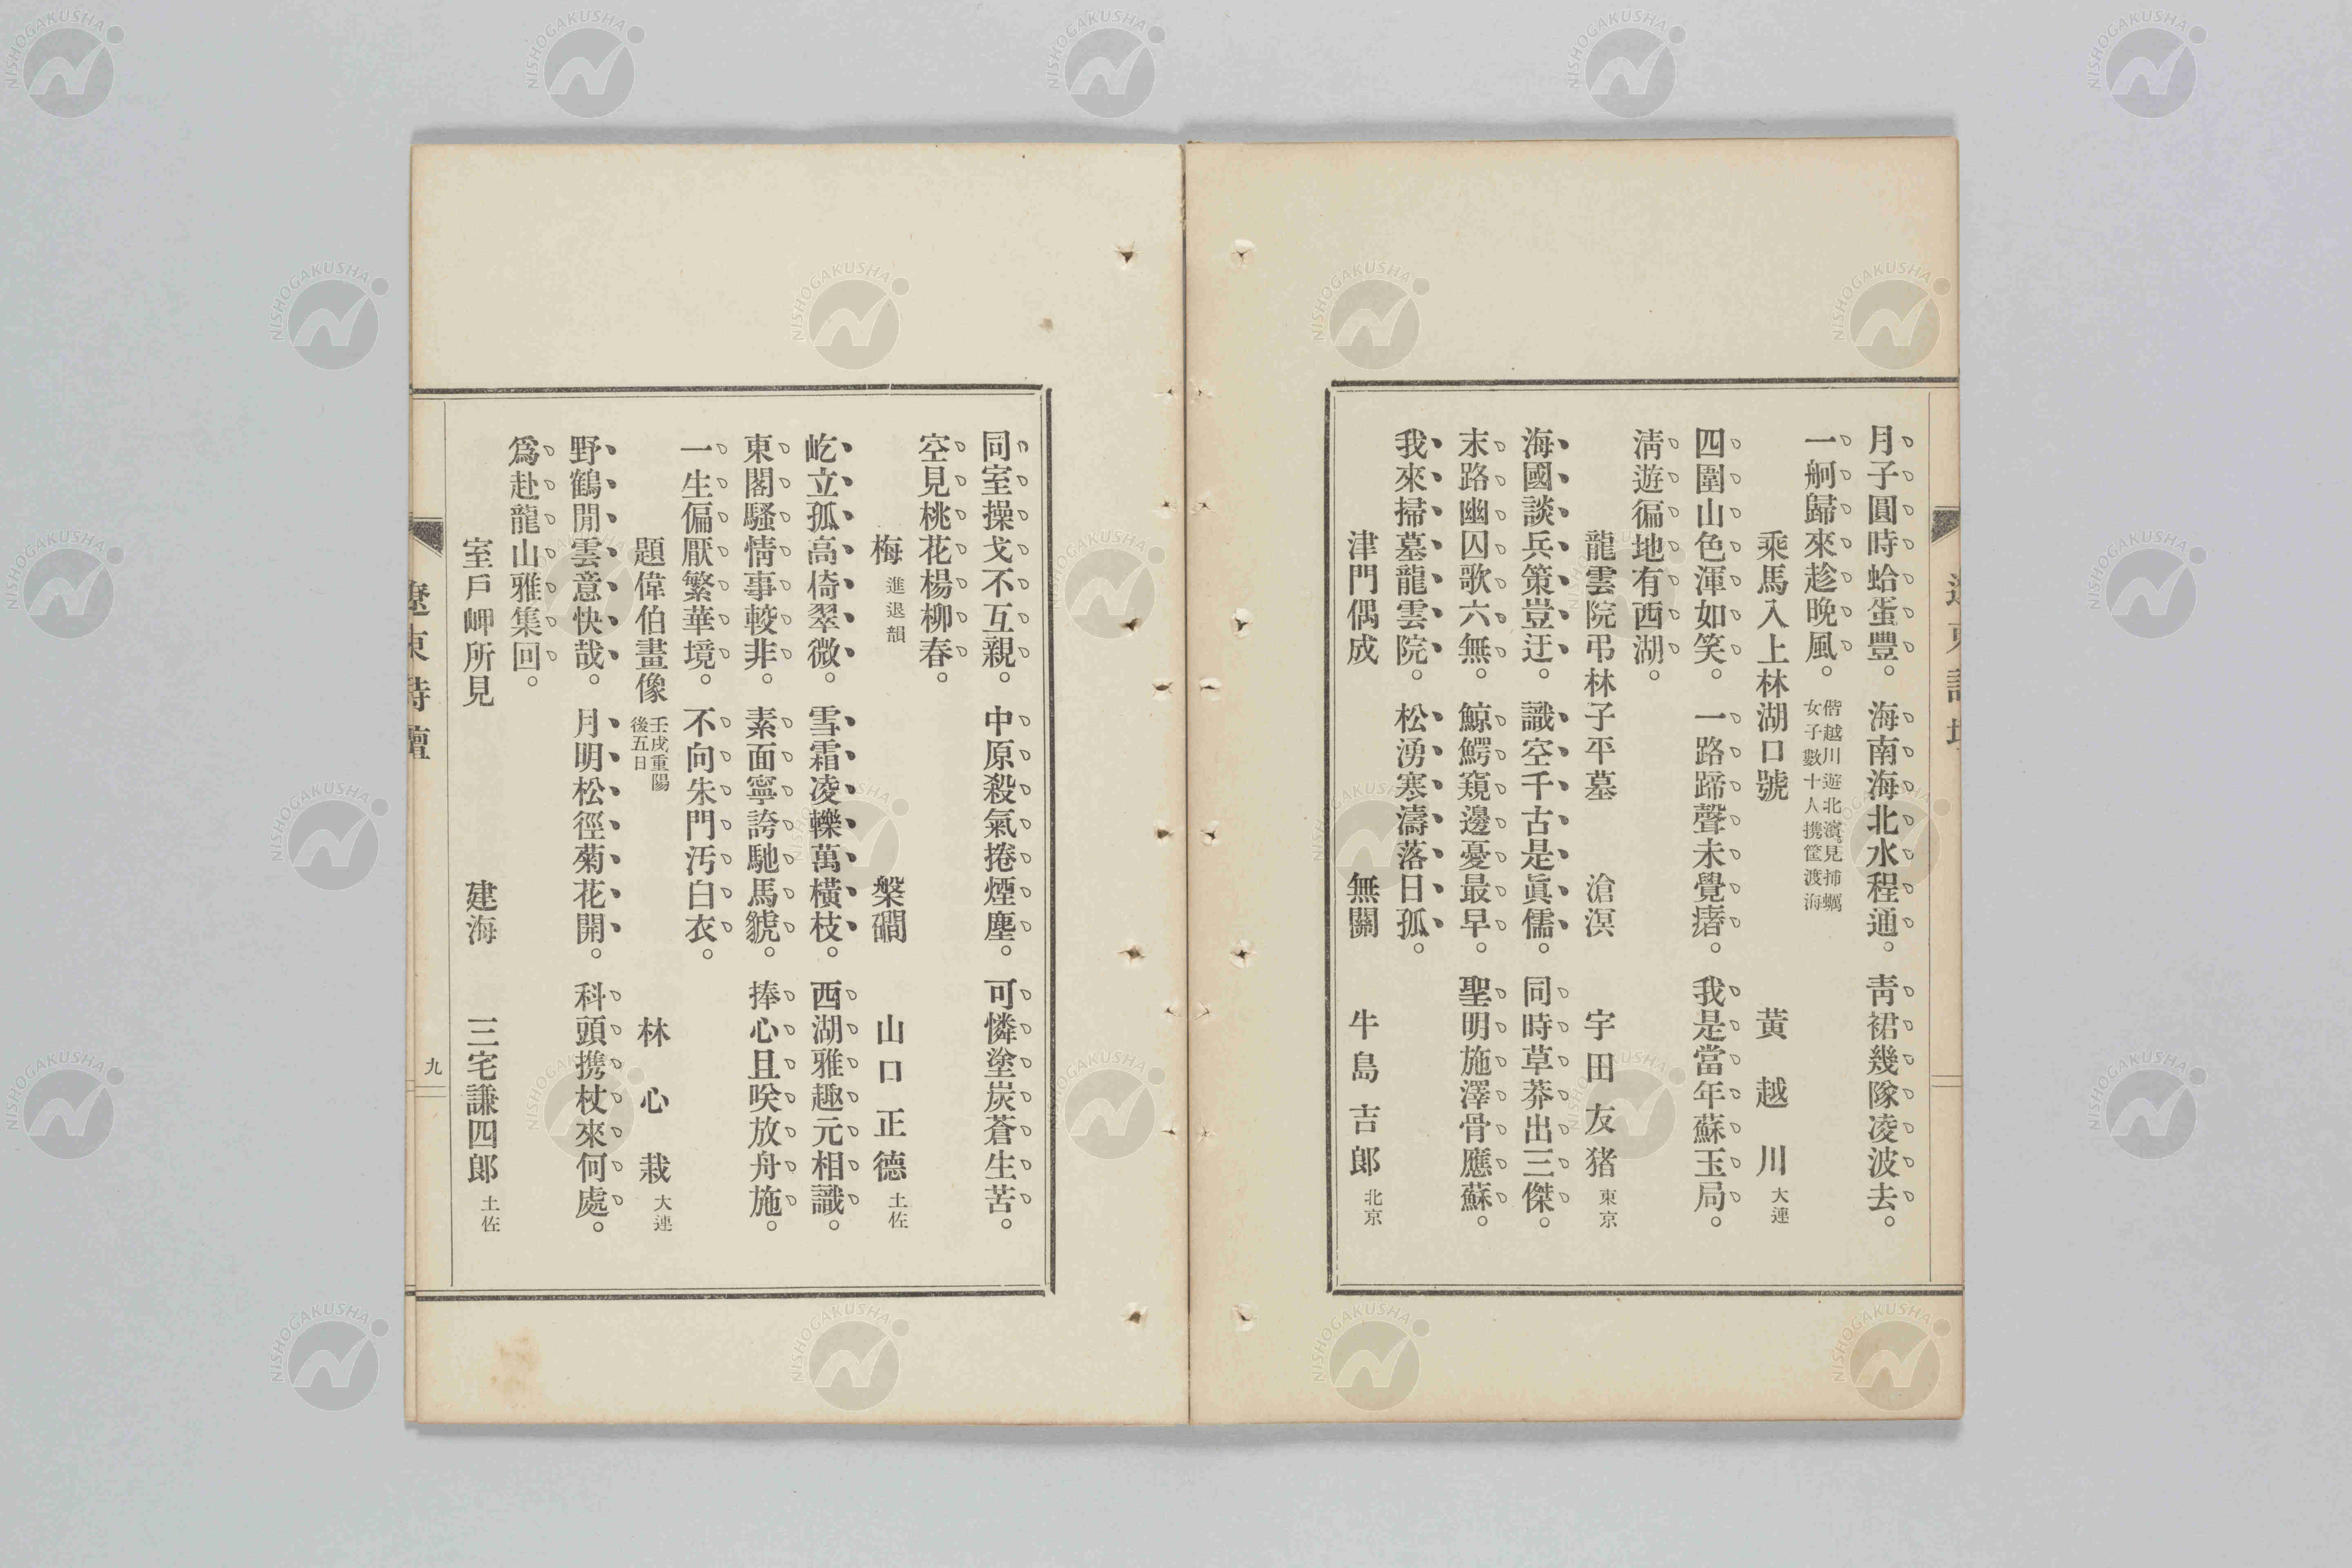 月子圓時蛤蛋豐。海南海北水程通。青裙幾隊凌波去。
一舸歸來趁晚風。偕越川遊北濱。見捕蠣
女子數十人携筐渡海
乘馬入上林湖口號 黃越川 大連
四圍山色渾如笑。一路蹄聲未覺瘏。我是當年蘇玉局。
淸遊徧地有西湖。
龍雲院弔林子平墓 滄溟 宇田友猪 東京
海國談兵策豈迂。識空千古是眞儒。同時草莽出三傑。
末路幽囚歌六無。鯨鰐窺邊憂最早。聖明施澤骨應蘇。
我來掃墓龍雲院。松湧寒濤落日孤。
津門偶成 無關 牛島吉郎 北京
同室操戈不互親。中原殺氣捲煙塵。可憐塗炭蒼生苦。
空見桃花楊柳春。
梅 進退韻 槃磵 山口正德 土佐
屹立孤高倚翠微。雪霜凌轢萬橫枝。西湖雅趣元相識。
東閣騷情事較非。素面寧誇馳馬貌。捧心且暌放舟施。
一生偏厭繁華境。不向朱門汚白衣。
題偉伯畫像 壬戌重陽
後五日 林心栽 大連
野鶴閒雲意快哉。月明松徑菊花開。科頭携杖來何處。
爲赴龍山雅集回。
室戶岬所見 建海 三宅謙四郎 土佐
遼東詩壇
九
NISHOGAKUSHA